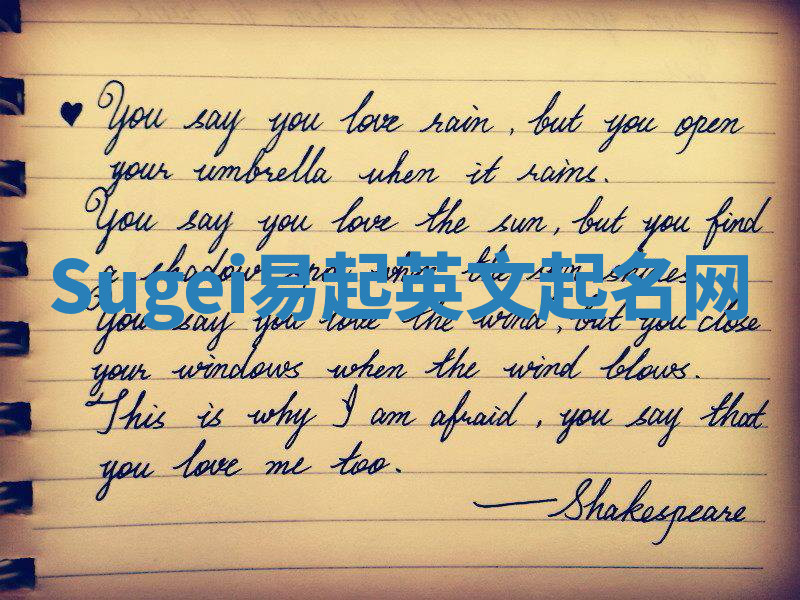 ♥ You say you love rain, but you open
your umbrella when it rains.
You say you love the sun, but you find
a shadow spot when the sun shines.
Sugei易起英文起名网
You say you love the wind, but you close
your windows when the wind blows.
This is why I am afraid, you say that
you love me too.
—Shakespeare